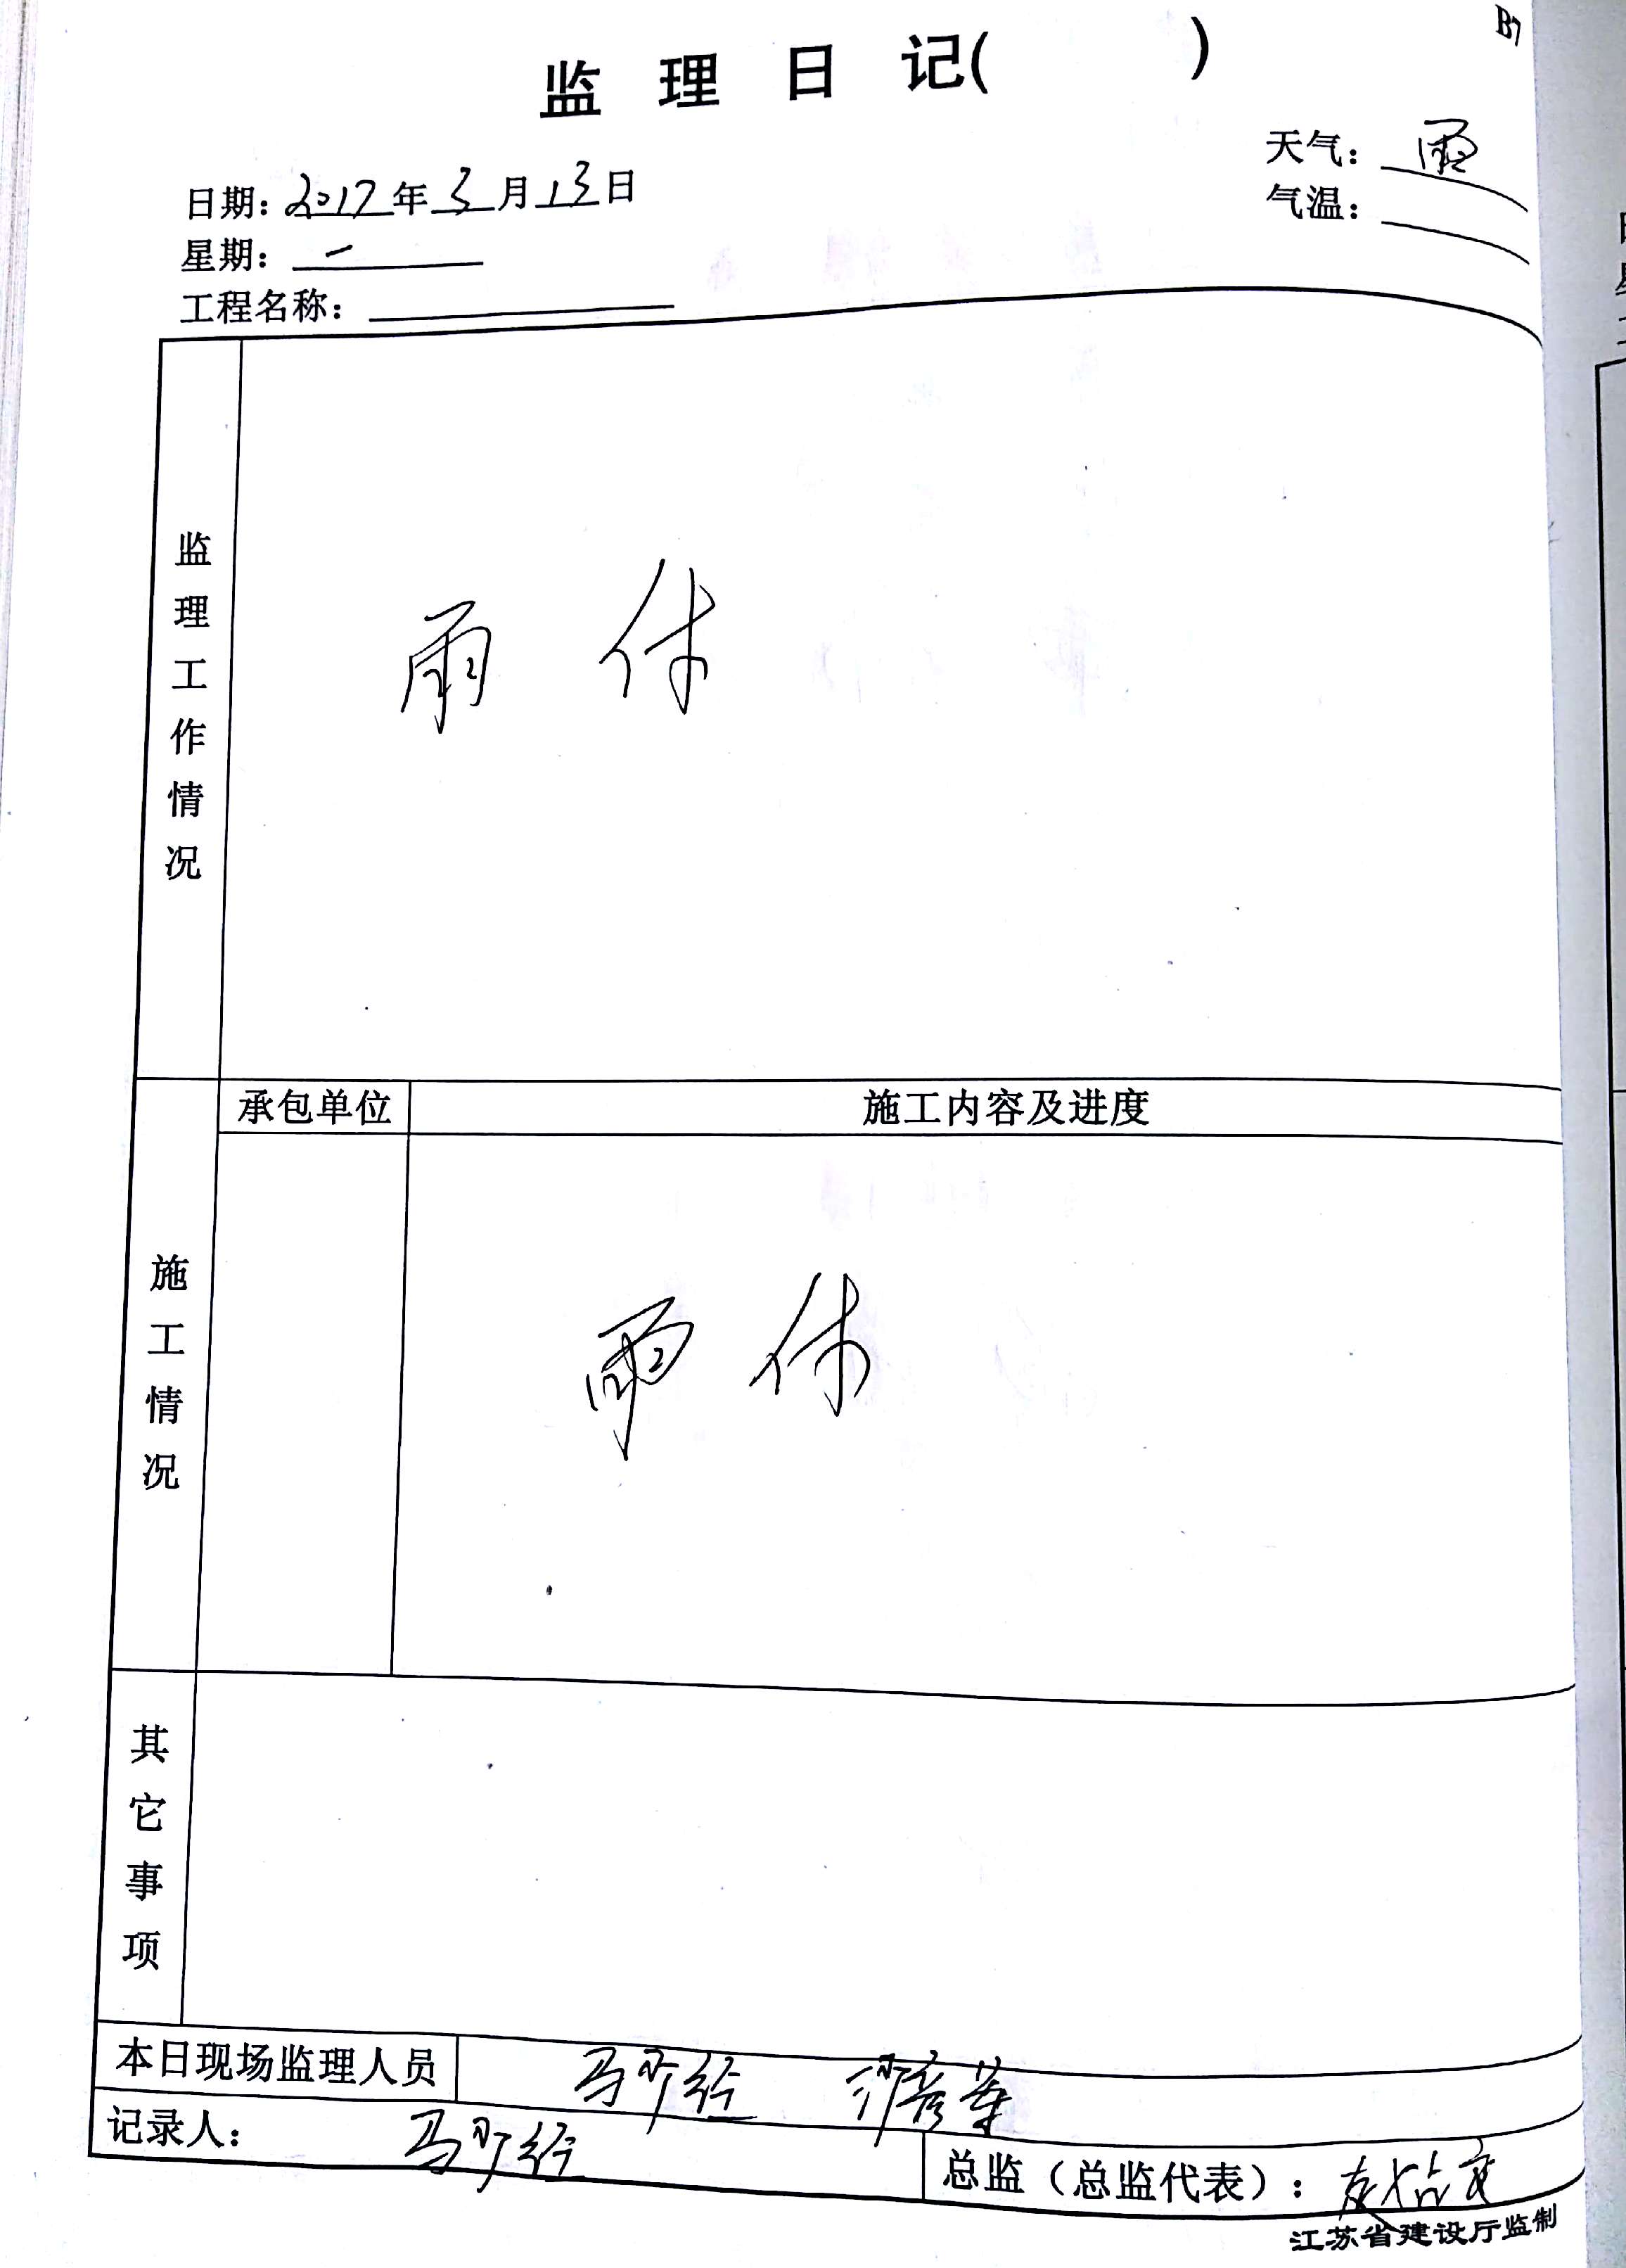 B7
监理日记( )
天气：雨
日期：2017年3月13日
气温：
星期：一
工程名称：
监理工作情况
雨休
承包单位 施工内容及进度
施工情况
雨休
其它事项
本日现场监理人员
记录人：
总监（总监代表）：
江苏省建设厅监制